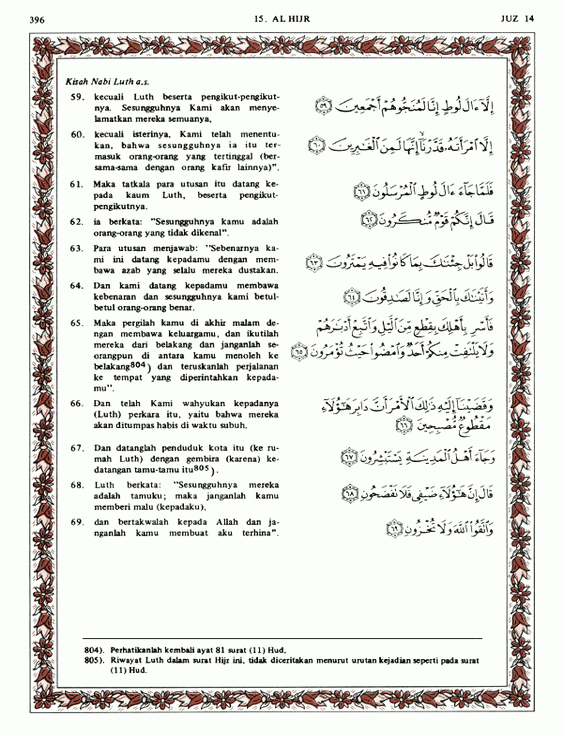 396
15. AL HIJR
JUZ 14
Kisah Nabi Luth a.s.
59. kecuali Luth beserta pengikut-pengikut-
nya. Sesungguhnya Kami akan menye-
lamatkan mereka semuanya,
إِلَّآ ءَالَ لُوطٍ إِنَّا لَمُنَجُّوهُمْ أَجْمَعِينَ ﴿٥٩﴾
60. kecuali isterinya, Kami telah menentu-
kan, bahwa sesungguhnya ia itu ter-
masuk orang-orang yang tertinggal (ber-
sama-sama dengan orang kafir lainnya)".
إِلَّا ٱمْرَأَتَهُۥ قَدَّرْنَآ إِنَّهَا لَمِنَ ٱلْغَٰبِرِينَ ﴿٦٠﴾
61. Maka tatkala para utusan itu datang ke-
pada kaum Luth, beserta pengikut-
pengikutnya.
فَلَمَّا جَآءَ ءَالَ لُوطٍ ٱلْمُرْسَلُونَ ﴿٦١﴾
62. ia berkata: "Sesungguhnya kamu adalah
orang-orang yang tidak dikenal".
قَالَ إِنَّكُمْ قَوْمٌ مُّنكَرُونَ ﴿٦٢﴾
63. Para utusan menjawab: "Sebenarnya ka-
mi ini datang kepadamu dengan mem-
bawa azab yang selalu mereka dustakan.
قَالُوا۟ بَلْ جِئْنَٰكَ بِمَا كَانُوا۟ فِيهِ يَمْتَرُونَ ﴿٦٣﴾
64. Dan kami datang kepadamu membawa
kebenaran dan sesungguhnya kami betul-
betul orang-orang benar.
وَأَتَيْنَٰكَ بِٱلْحَقِّ وَإِنَّا لَصَٰدِقُونَ ﴿٦٤﴾
65. Maka pergilah kamu di akhir malam de-
ngan membawa keluargamu, dan ikutilah
mereka dari belakang dan janganlah se-
orangpun di antara kamu menoleh ke
belakang804) dan teruskanlah perjalanan
ke tempat yang diperintahkan kepada-
mu".
فَأَسْرِ بِأَهْلِكَ بِقِطْعٍ مِّنَ ٱلَّيْلِ وَٱتَّبِعْ أَدْبَٰرَهُمْ
وَلَا يَلْتَفِتْ مِنكُمْ أَحَدٌ وَٱمْضُوا۟ حَيْثُ تُؤْمَرُونَ ﴿٦٥﴾
66. Dan telah Kami wahyukan kepadanya
(Luth) perkara itu, yaitu bahwa mereka
akan ditumpas habis di waktu subuh.
وَقَضَيْنَآ إِلَيْهِ ذَٰلِكَ ٱلْأَمْرَ أَنَّ دَابِرَ هَٰٓؤُلَآءِ
مَقْطُوعٌ مُّصْبِحِينَ ﴿٦٦﴾
67. Dan datanglah penduduk kota itu (ke ru-
mah Luth) dengan gembira (karena) ke-
datangan tamu-tamu itu805).
وَجَآءَ أَهْلُ ٱلْمَدِينَةِ يَسْتَبْشِرُونَ ﴿٦٧﴾
68. Luth berkata: "Sesungguhnya mereka
adalah tamuku; maka janganlah kamu
memberi malu (kepadaku),
قَالَ إِنَّ هَٰٓؤُلَآءِ ضَيْفِى فَلَا تَفْضَحُونِ ﴿٦٨﴾
69. dan bertakwalah kepada Allah dan ja-
nganlah kamu membuat aku terhina".
وَٱتَّقُوا۟ ٱللَّهَ وَلَا تُخْزُونِ ﴿٦٩﴾
804). Perhatikanlah kembali ayat 81 surat (11) Hud.
805). Riwayat Luth dalam surat Hijr ini, tidak diceritakan menurut urutan kejadian seperti pada surat
(11) Hud.